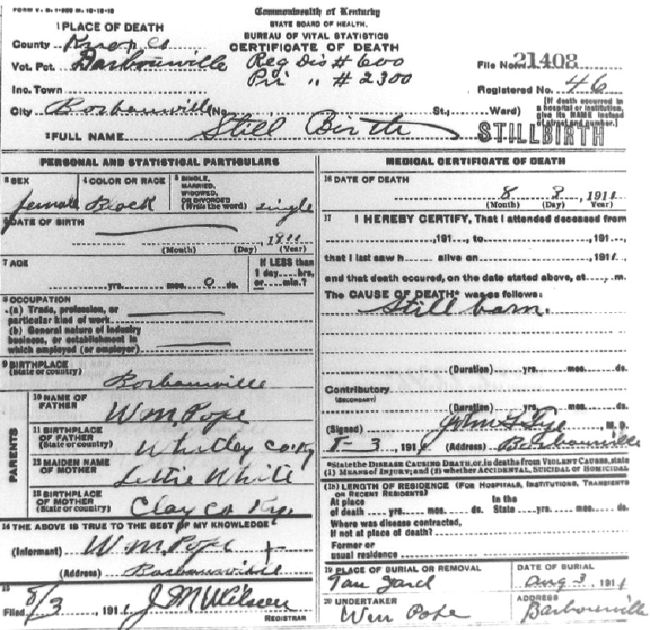 Commonwealth of Kentucky
STATE BOARD OF HEALTH.
BUREAU OF VITAL STATISTICS
CERTIFICATE OF DEATH
1 PLACE OF DEATH
County Knox Co
Vot. Pct. Barbourville Reg Dis # 600
Pri " # 2300
File No. 21408
Inc. Town
Registered No. 46
City Barbourville No. St.; Ward)
[If death occurred in a hospital or institution, give its NAME instead of street and number.]
2 FULL NAME Still Birth
STILLBIRTH
PERSONAL AND STATISTICAL PARTICULARS
3 SEX female
4 COLOR OR RACE Black
5 SINGLE, MARRIED, WIDOWED, OR DIVORCED (Write the word) single
6 DATE OF BIRTH
1911
(Month) (Day) (Year)
7 AGE
yrs. mos. 0 ds.
If LESS than 1 day hrs. or min.?
8 OCCUPATION
(a) Trade, profession, or particular kind of work
(b) General nature of industry business, or establishment in which employed (or employer)
9 BIRTHPLACE (State or country) Barbourville
PARENTS
10 NAME OF FATHER Wm Pope
11 BIRTHPLACE OF FATHER (State or country) Whitley Co Ky
12 MAIDEN NAME OF MOTHER Lettie White
13 BIRTHPLACE OF MOTHER (State or country) Clay Co Ky
14 THE ABOVE IS TRUE TO THE BEST OF MY KNOWLEDGE
(Informant) Wm Pope
(Address) Barbourville
15
Filed 8/3, 1911 J M Wilson
REGISTRAR
MEDICAL CERTIFICATE OF DEATH
16 DATE OF DEATH
8 3 1911
(Month) (Day) (Year)
17 I HEREBY CERTIFY, That I attended deceased from
, 191 , to , 191 ,
that I last saw h alive on , 1911,
and that death occured, on the date stated above, at m.
The CAUSE OF DEATH* was as follows:
Still born.
(Duration) yrs. mos. ds.
Contributory
(SECONDARY)
(Duration) yrs. mos. ds.
(Signed) M. D.
8-3, 1911 (Address) Barbourville
*State the DISEASE CAUSING DEATH, or, in deaths from VIOLENT CAUSES, state (1) MEANS OF INJURY; and (2) whether ACCIDENTAL, SUICIDAL or HOMICIDAL
18 LENGTH OF RESIDENCE (FOR HOSPITALS, INSTITUTIONS, TRANSIENTS OR RECENT RESIDENTS)
At place of death yrs. mos. ds. In the State yrs. mos. ds.
Where was disease contracted,
If not at place of death?
Former or usual residence
19 PLACE OF BURIAL OR REMOVAL Tan Yard
DATE OF BURIAL Aug 3, 1911
20 UNDERTAKER Wm Pope
ADDRESS Barbourville